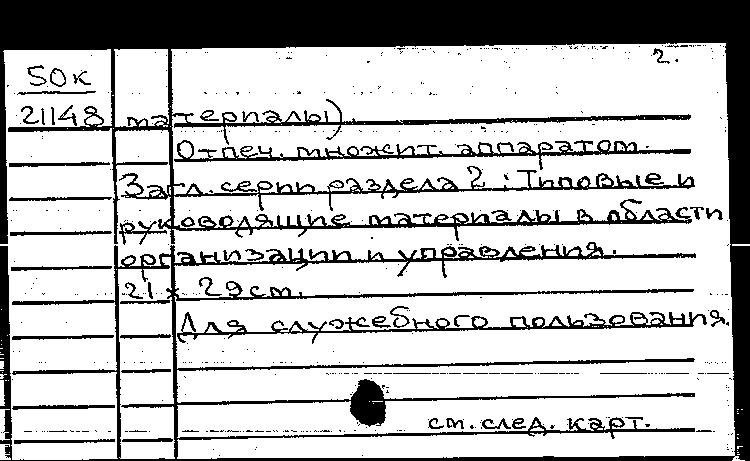 2.
50к
21148 материалы).
Отпеч. множит. аппаратом.
Загл. серии раздела 2 : Типовые и
руководящие материалы в области
организации и управления.
21 x 29 см.
Для служебного пользования.
см. след. карт.